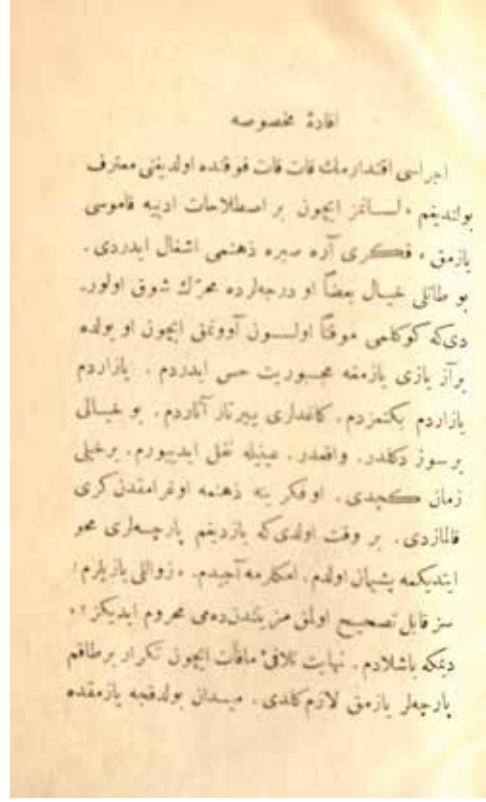 افادۀ مخصوصه
اجراسی اقتدارمك قات قات فوقنده اولدیغنی معترف
بولندیغم «لسانمز ایچون بر اصطلاحات ادبیه قاموسی
یازمق» فكری آره صیره ذهنمی اشغال ایدردی.
بو طاتلی خیال بعضاً او درجه‌لرده محرّك شوق اولور-
دی‌كه كوكلمی موقتاً اولسون آووتمق ایچون او یولده
برآز یازی یازمغه مجبوریت حس ایدردم. یازاردم
یازاردم بكنمزدم. كاغدلری ییرتار آتاردم. بو خیالی
برسوز دكلدر. واقعدر. عینیله نقل ایدییورم. برخیلی
زمان كچدی. اوفكر ینه ذهنمه اوغرامقدن كری
قالمازدی. بر وقت اولدی‌كه یازدیغم پارچه‌لری محو
ایتدیكمه پشیمان اولدم. امكلرمه آجیدم. «زواللی یازیلرم!
سز قابل تصحیح اولمق مزیتندن‌ده‌می محروم ایدیكز؟»
دیمكه باشلادم. نهایت تلافیٔ مافات ایچون تكرار برطاقم
پارچه‌لر یازمق لازم كلدی. میدان بولدقجه یازمقده